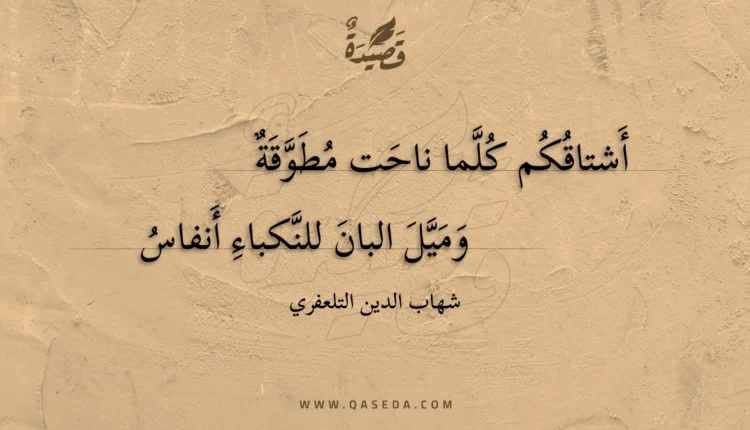 قَصِيدَةٌ
أَشتاقُكُم كُلَّما ناحَت مُطَوَّقَةٌ
وَمَيَّلَ البانَ للنَّكباءِ أَنفاسُ
شهاب الدين التلعفري
WWW.QASEDA.COM